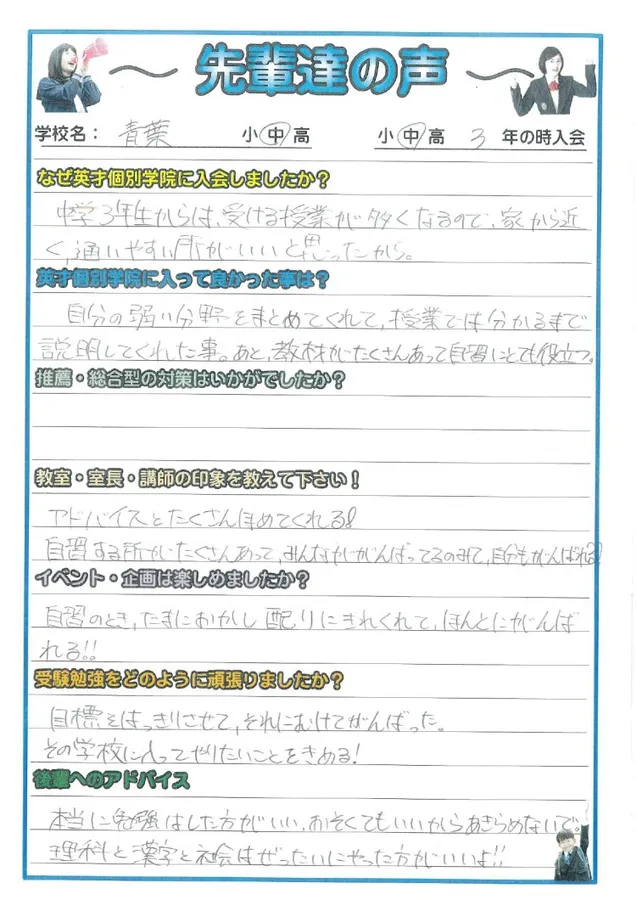 先輩達の声
学校名： 青葉 小 中 高 小 中 高 3 年の時入会
なぜ英才個別学院に入会しましたか？
中学3年生からは、受ける授業が多くなるので、家から近
く、通いやすい所がいいと思ったから。
英才個別学院に入って良かった事は？
自分の弱い分野をまとめてくれて、授業では分かるまで
説明してくれた事。あと、教材がたくさんあって自習にとても役立つ。
推薦・総合型の対策はいかがでしたか？
教室・室長・講師の印象を教えて下さい！
アドバイスとたくさんほめてくれる!
自習する所がたくさんあって、みんながんばってるのみて、自分もがんばれる!
イベント・企画は楽しめましたか？
自習のとき、たまにおかし配りにきれくれて、ほんとにがんば
れる!!
受験勉強をどのように頑張りましたか？
目標をはっきりさせて、それにむけてがんばった。
その学校に入ってやりたいことをきめる!
後輩へのアドバイス
本当に勉強はした方がいい、おそくてもいいからあきらめないで。
理科と漢字と社会はぜったいにやった方がいいよ!!